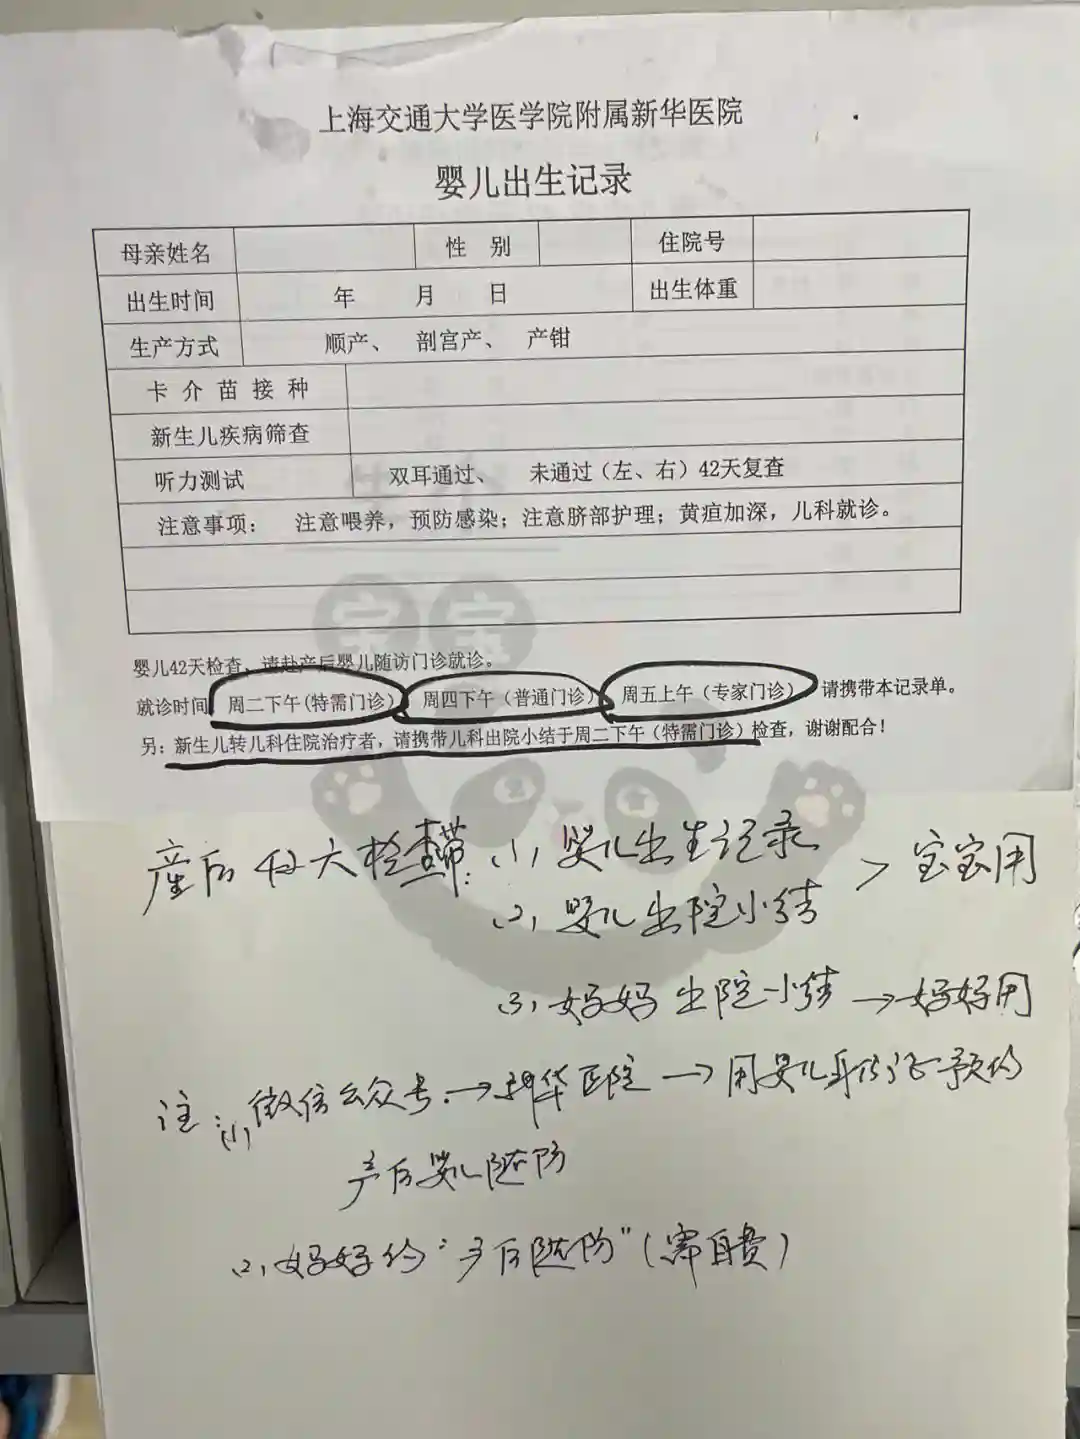 上海交通大学医学院附属新华医院
婴儿出生记录
母亲姓名 性 别 住院号
出生时间 年 月 日 出生体重
生产方式 顺产、 剖宫产、 产钳
卡 介 苗 接 种
新生儿疾病筛查
听力测试 双耳通过、 未通过（左、右）42天复查
注意事项： 注意喂养，预防感染；注意脐部护理；黄疸加深，儿科就诊。
宝宝
婴儿42天检查，请赴产后婴儿随访门诊就诊。
就诊时间 周二下午(特需门诊) 周四下午（普通门诊） 周五上午（专家门诊） 请携带本记录单。
另：新生儿转儿科住院治疗者，请携带儿科出院小结于周二下午（特需门诊）检查，谢谢配合！
产后42天检查带：(1) 婴儿出生记录 > 宝宝用
(2) 婴儿出院小结
(3) 妈妈出院小结 → 妈妈用
注：(1) 微信公众号 → 新华医院 → 用婴儿身份证预约
产后婴儿随访
(2) 妈妈约“产后随访”（需自费）